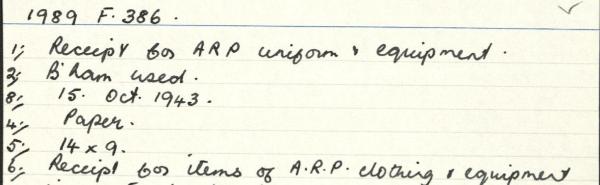 1989 F. 386.
1; Receipt for ARP uniform & equipment.
2; B'ham used.
3; 15. Oct. 1943.
4; Paper.
5; 14 x 9.
6; Receipt for items of A.R.P. clothing & equipment